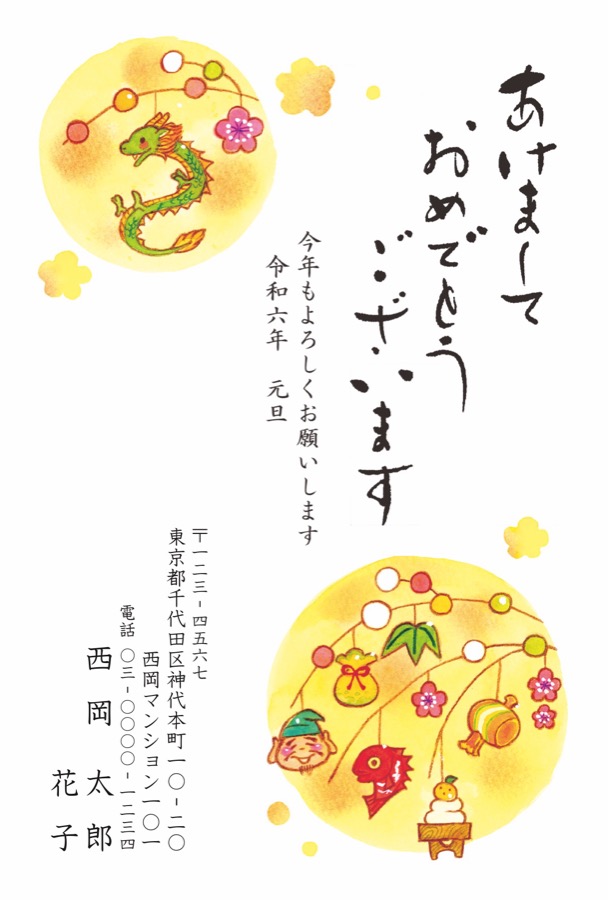 あけまして
おめでとう
ございます
今年もよろしくお願いします
令和六年　元旦
〒一二三-四五六七
東京都千代田区神代本町一〇-二〇
西岡マンション一〇一
電話　〇三-〇〇〇〇-一二三四
西岡　太郎
花子